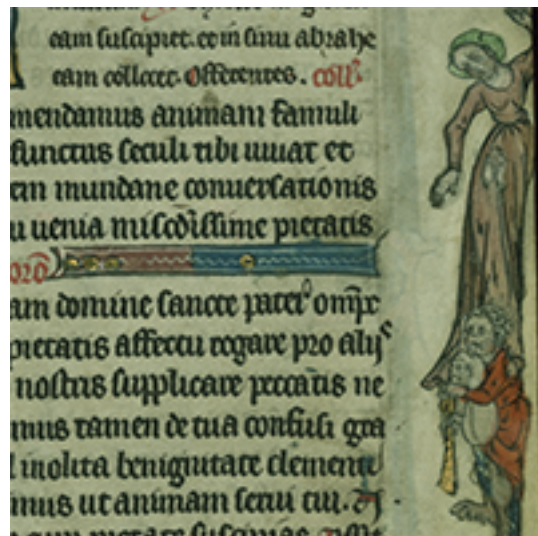 eam suscipiet. et in sinu abrahe
eam collocet. Offerentes. coll'.
mendamus animam famuli
functus seculi tibi uiuat et
em mundane conuersationis
u uenia misc̄dissime pietatis
oro
am domine sancte pater omp̄c
pietatis affectu rogare pro alijs
nostris supplicare peccatis ne
mus tamen de tua confisi gra
inolita benignitate clementi
mus ut animam serui tui. N.